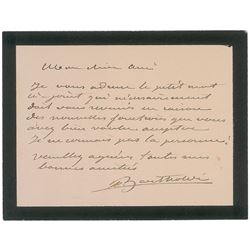 Mon cher ami
Je vous adresse le petit mot
ci-joint qui nécessairement
doit vous revenir en raison
des nouvelles fonctions que vous
avez bien voulu accepter
Je ne connais pas la personne!
veuillez agréer toutes mes
bonnes amitiés
Bartholdi